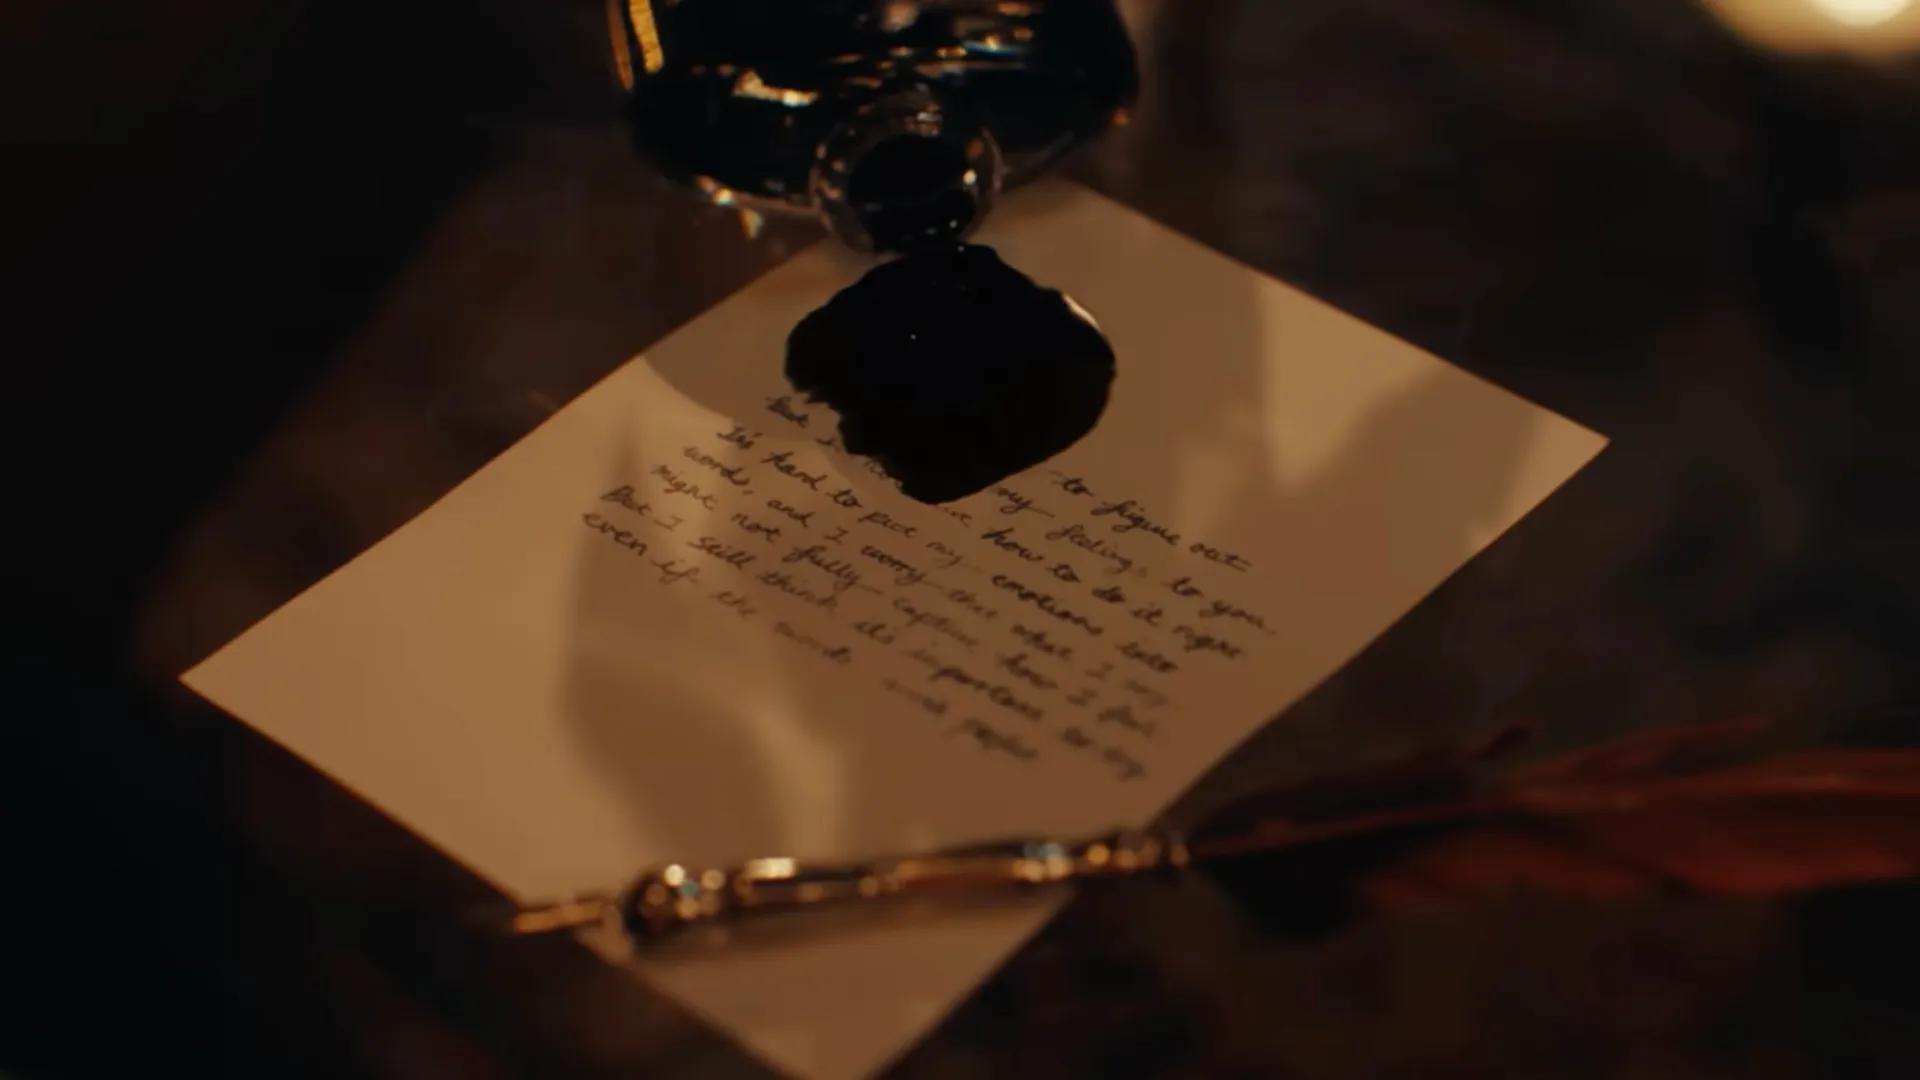 to figure out
my feelings to you.
But I how to do it right
It's hard to put my emotions into
words, and I worry that what I say
might not fully capture how I feel
But I still think it's important to try
even if the words